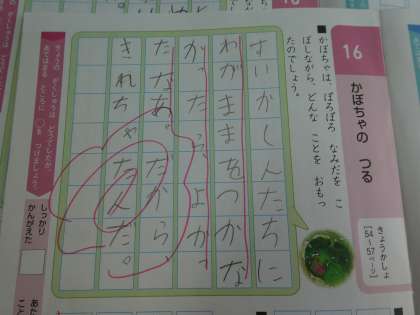 16
かぼちゃの つる
きょうかしょ
[54〜57ページ]
■かぼちゃは ぽろぽろ なみだを こ
ぼしながら、どんな ことを おもっ
たのでしょう。
すいかしんたちに
わがままをつかな
かったら、よかっ
たなあ。だから、
きれちゃたんだ。
きょうの がくしゅうは どうでしたか。
あてはまる ところに ○を つけましょう。
しっかり
かんがえた